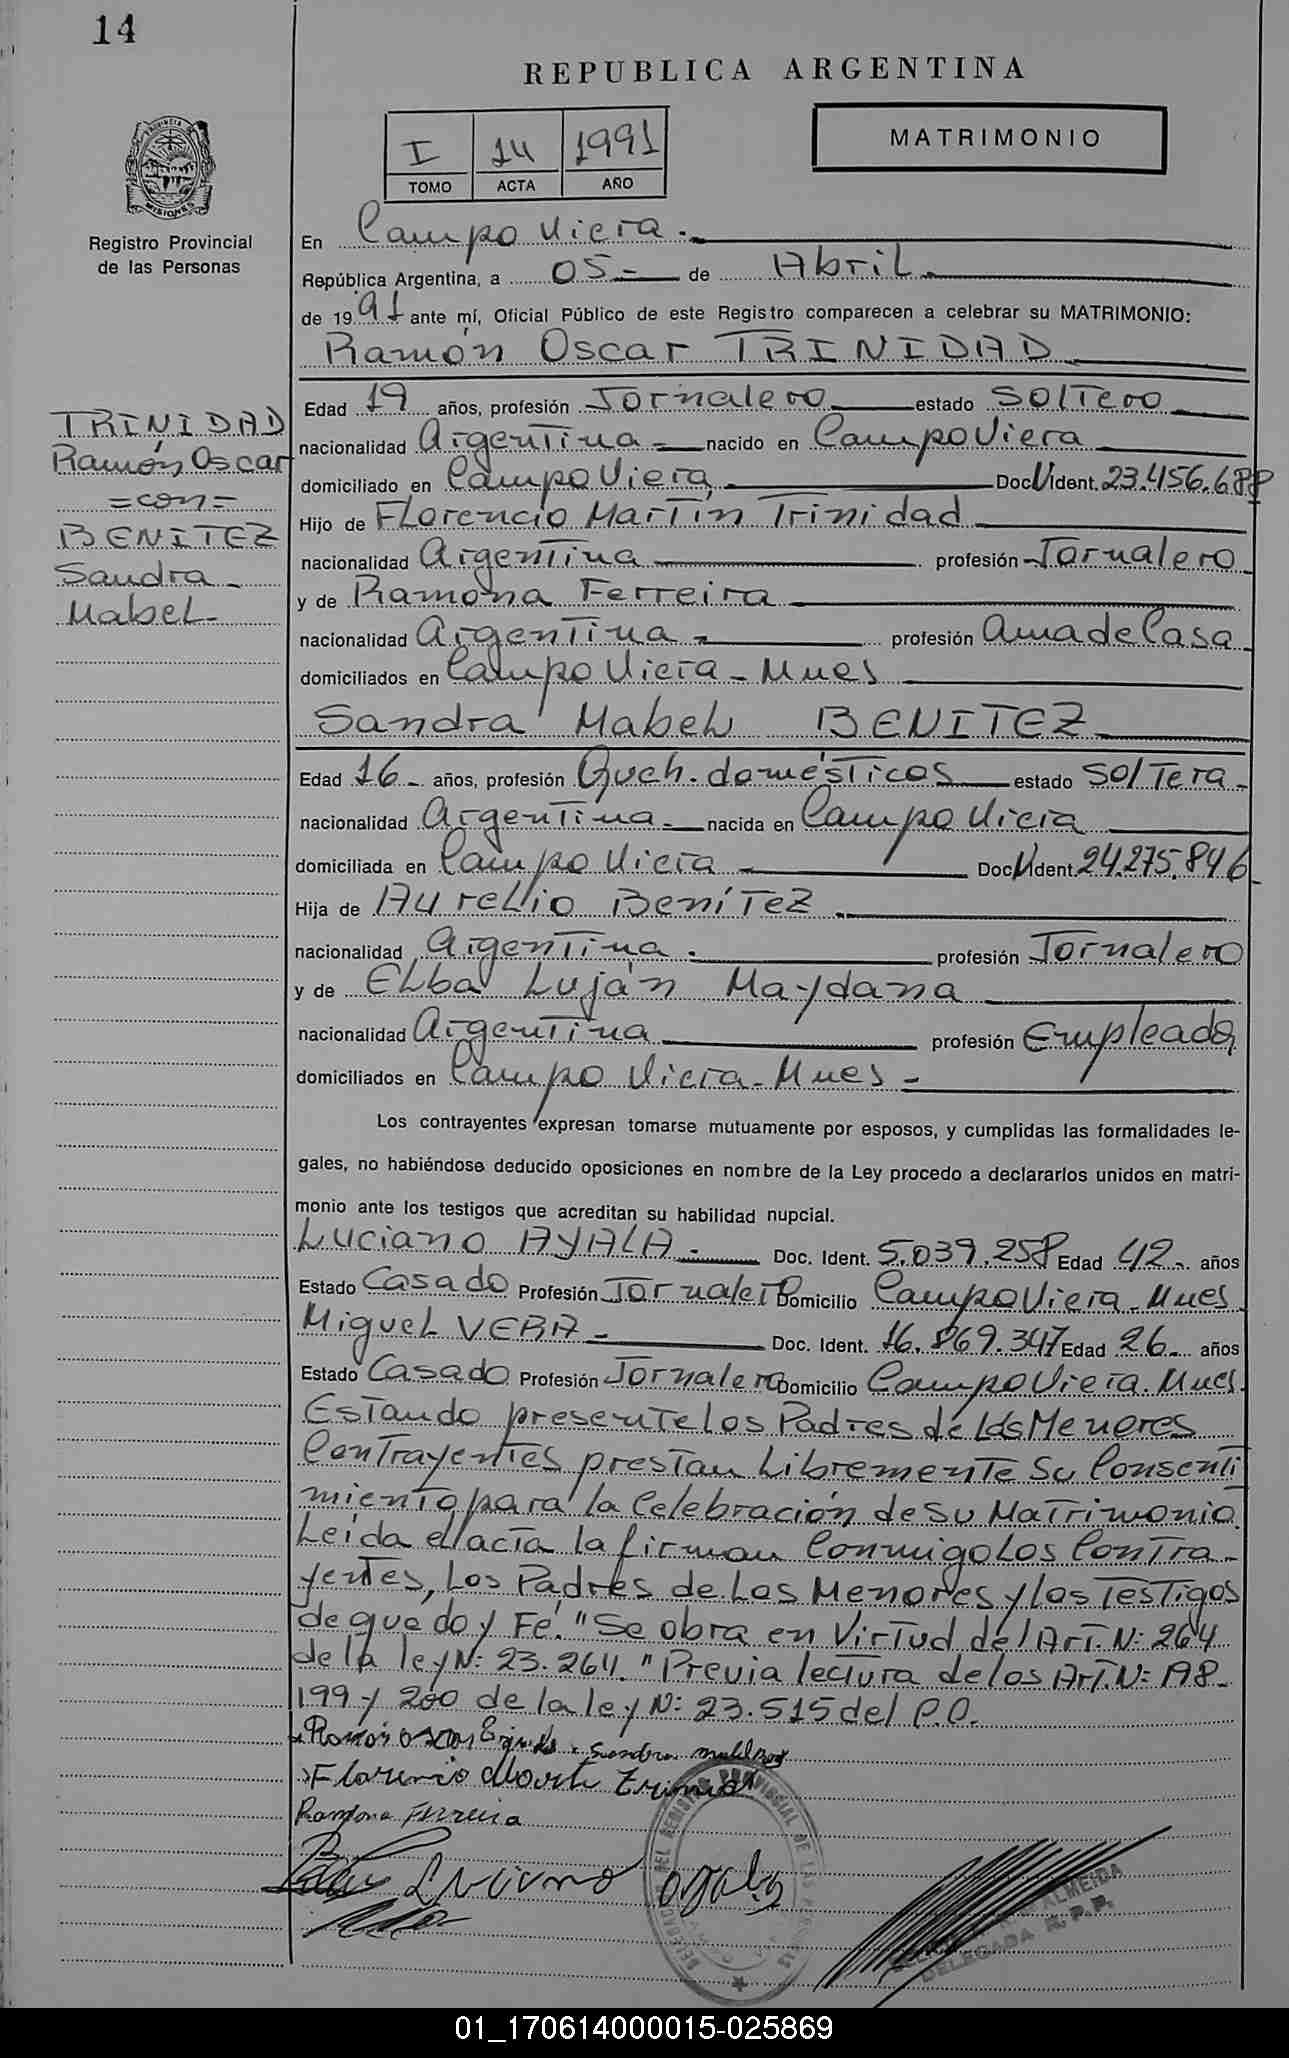 14
REPUBLICA ARGENTINA
I 14 1991
TOMO ACTA AÑO
MATRIMONIO
PROVINCIA DE
MISIONES
Registro Provincial
de las Personas
En Campo Viera.-
República Argentina, a 05- de Abril.
de 1991 ante mí, Oficial Público de este Registro comparecen a celebrar su MATRIMONIO:
Ramón Oscar TRINIDAD
TRINIDAD
Ramón Oscar
=con=
BENITEZ
Sandra -
Mabel-
Edad 19 años, profesión Jornalero estado Soltero
nacionalidad Argentina - nacido en Campo Viera
domiciliado en Campo Viera Doc. Ident. 23.456.688
Hijo de Florencio Martín Trinidad
nacionalidad Argentina profesión Jornalero
y de Ramona Ferreira
nacionalidad Argentina - profesión Ama de Casa
domiciliados en Campo Viera - Mnes
Sandra Mabel BENITEZ
Edad 16- años, profesión Queh. domésticos estado Soltera-
nacionalidad Argentina- nacida en Campo Viera
domiciliada en Campo Viera - Doc. Ident. 24.275.846
Hija de Aurelio Benítez
nacionalidad Argentina. profesión Jornalero
y de Elba Luján Maydana
nacionalidad Argentina profesión Empleada
domiciliados en Campo Viera - Mnes -
Los contrayentes expresan tomarse mutuamente por esposos, y cumplidas las formalidades le-
gales, no habiéndose deducido oposiciones en nombre de la Ley procedo a declararlos unidos en matri-
monio ante los testigos que acreditan su habilidad nupcial.
Luciano AYALA.- Doc. Ident. 5.039.258 Edad 42- años
Estado Casado Profesión Jornalero Domicilio Campo Viera - Mnes
Miguel VERA - Doc. Ident. 16.869.347 Edad 26- años
Estado Casado Profesión Jornalero Domicilio Campo Viera. Mnes.
Estando presente los Padres de los Menores
Contrayentes prestan Libremente su Consenti
miento para la Celebración de su Matrimonio.
Leída el acta la firman Conmigo los Contra-
yentes, Los Padres de Los Menores y los Testigos
de que doy Fé. "Se obra en Virtud del Art. N: 264
de la ley N: 23.264." Previa lectura de los Art. N: 198-
199 y 200 de la ley N: 23.515 del C.C.
Ramón Oscar Sandra
Florencio
Ramona Ferreira
Luciano ayala
ALMEIDA
DELEGADA R.P.P.
01_170614000015-025869